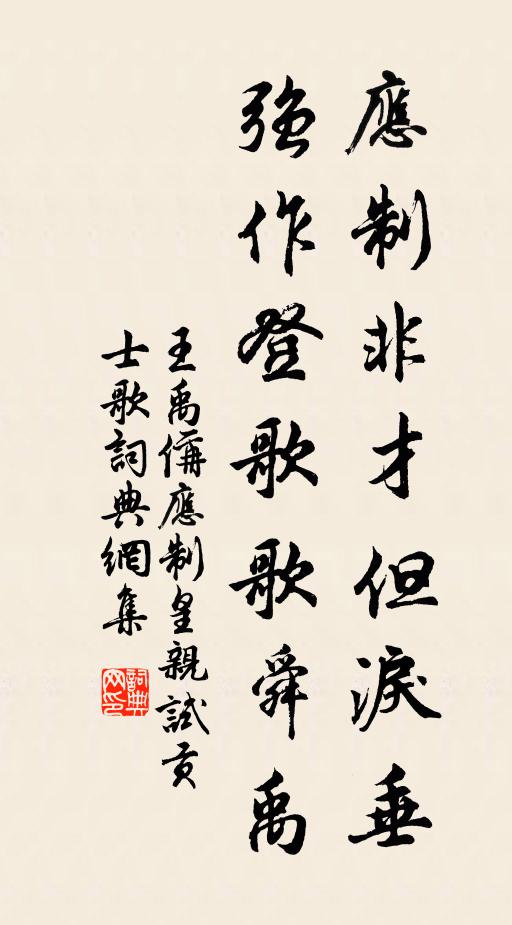 應制非才但淚垂
強作登歌歌舜禹
王禹偁應制皇親試貢
士歌詞典網集
詞典网印